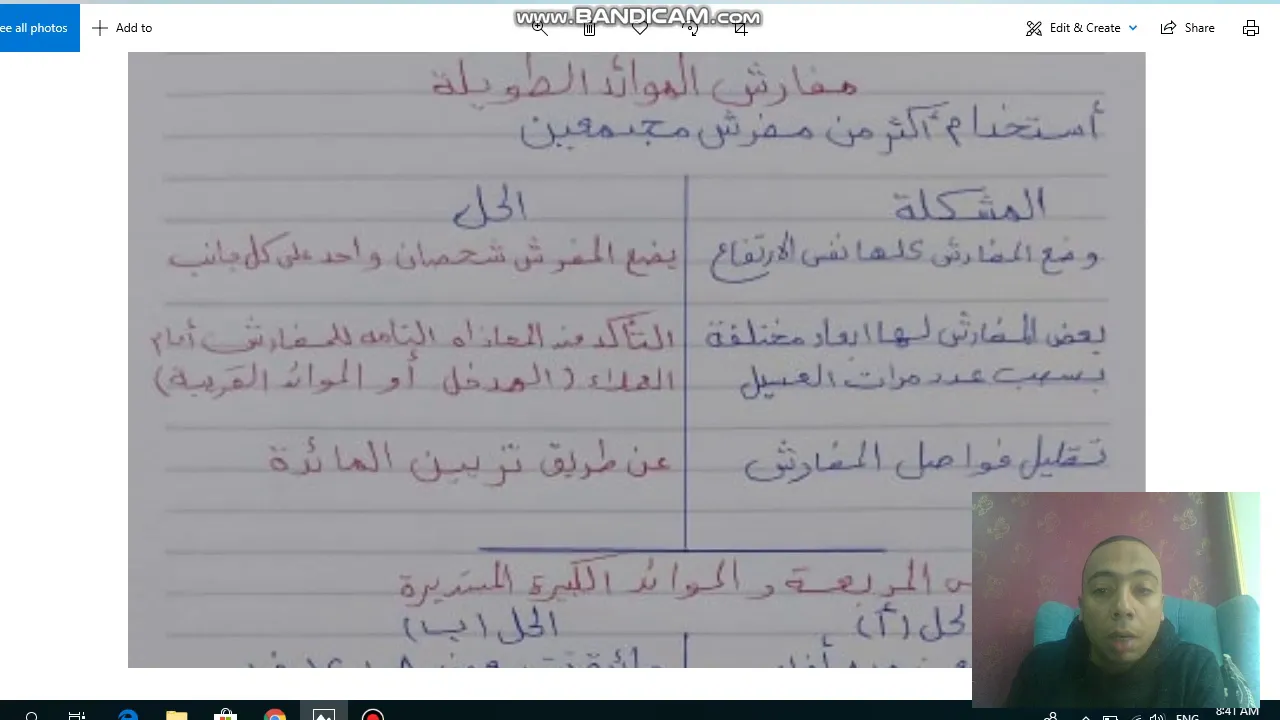 www.BANDICAM.com
ee all photos
Add to
Edit & Create
Share
مفارش الموائد الطويلة
أستخدام أكثر من مفرش مجتمعين
المشكلة
الحل
وضع المفارش كلها نفس الارتفاع
يضع المفرش شخصان واحد على كل جانب
بعض المفارش لها ابعاد مختلفة
بسبب عدد مرات الغسيل
التأكد من المحاذاه التامه للمفارش أمام
العملاء (المدخل أو الموائد القريبة)
تقليل فواصل المفارش
عن طريق تزيين المائدة
المربعة و الموائد الكبيرة المستديرة
لحل (أ)
الحل (ب)
ENG
8:41 AM